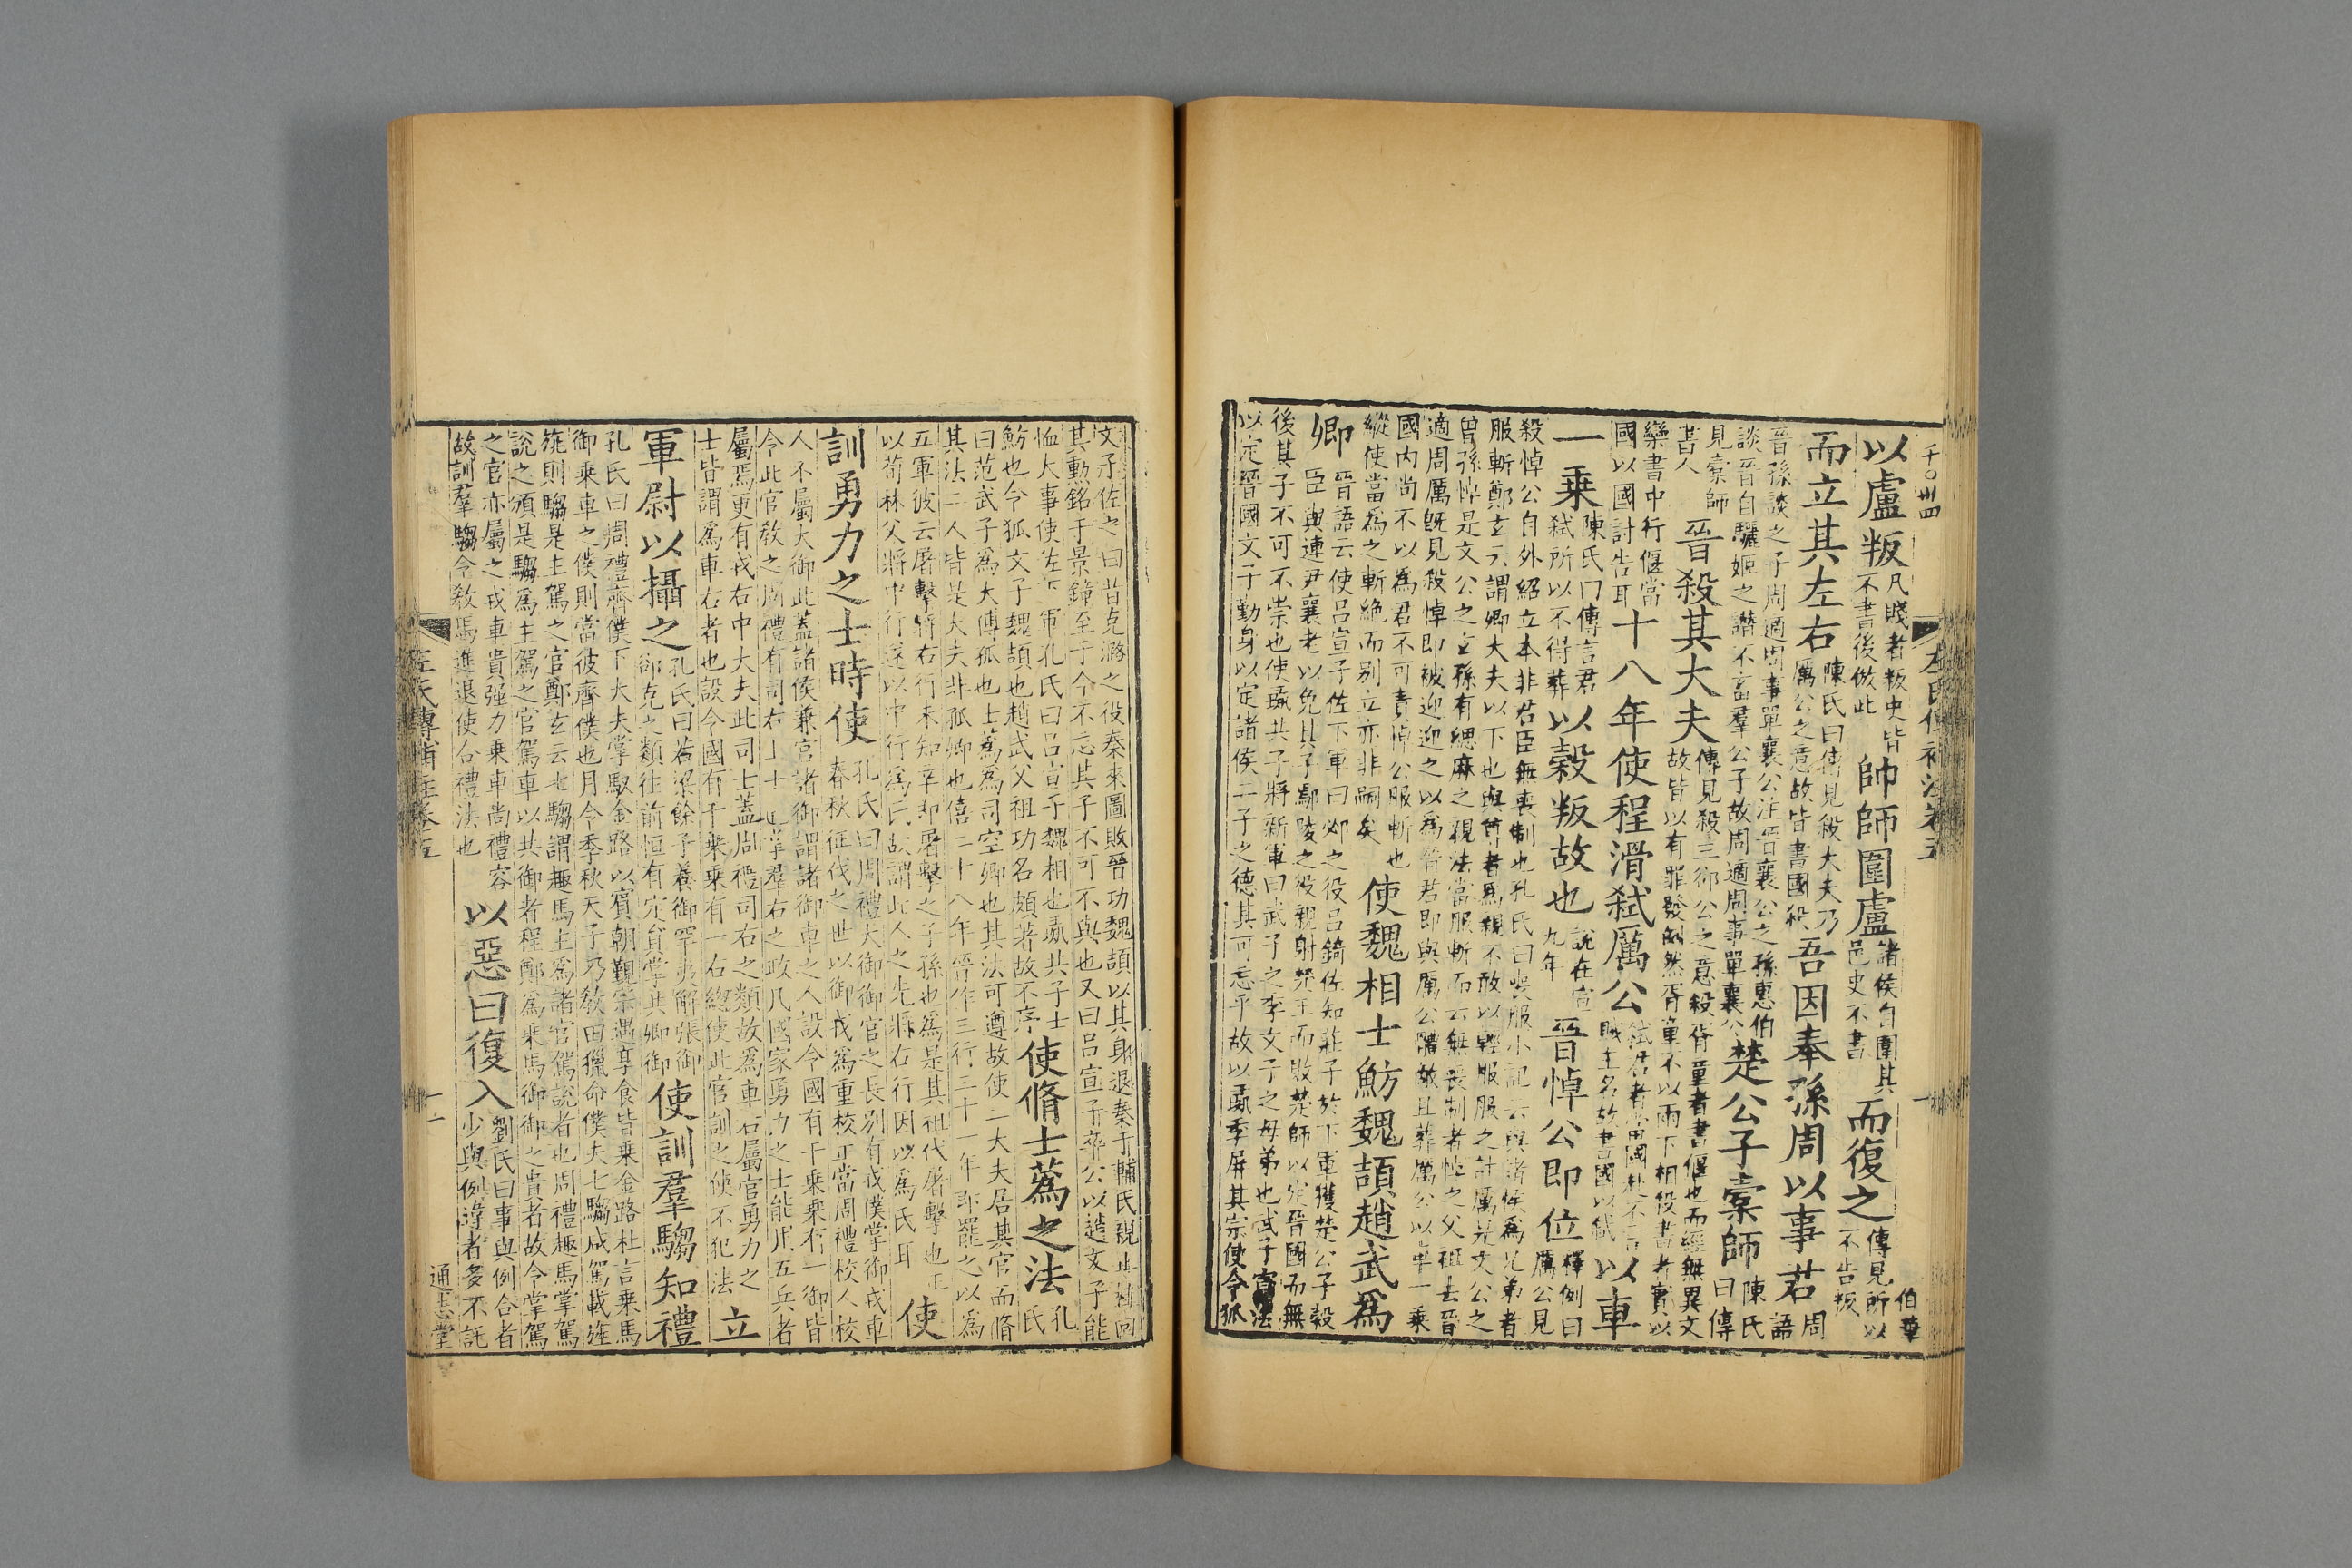 千〇卌四
左氏傳補注卷五
伯華
以盧叛凡賤者叛史皆不書後倣此帥師圍盧諸侯自圍其邑史不書而復之傳見所以不告叛
而立其左右陳氏曰傳見殺大夫乃厲公之意故皆書國殺吾因奉孫周以事君周語
晉孫談之子周適周事單襄公注晉襄公之孫惠伯談晉自驪姬之譖不畜羣公子故周適周事單襄公楚公子橐師陳氏曰傳
見橐師書人晉殺其大夫傳見殺三郤公之意殺胥童者書偃也而經無異文故皆以有罪發例然胥童不以兩下相役書者實以
欒書中行偃當國以國討告耳十八年使程滑弒厲公弒君者賊主名故書國以弒以車
一乘陳氏門傳言君弒所以不得葬以穀叛故也說在宣九年晉悼公即位釋例曰厲公見
殺悼公自外紹立本非君臣無喪制也孔氏曰喪服小記云與諸侯爲兄弟者服斬鄭玄云謂卿大夫以下也與尊者爲親不敢以輕服服之計厲是文公之
曾孫悼是文公之玄孫有緦麻之親法當服斬而云無喪制者悼之父祖去晉適周厲旣見殺悼即被迎迎之以爲晉君即與厲公體敵且葬厲公以車一乘
國内尚不以爲君不可責悼公服斬也縱使當爲之斬絶而别立亦非嗣矣使魏相士魴魏頡趙武爲
卿晉語云使吕宣子佐下軍曰邲之役吕錡佐知莊子於下軍獲楚公子穀臣與連尹襄老以免其子鄢陵之役親射楚王而敗楚師以定晉國而無
後其子不可不崇也使彘共子將新軍曰武子之季文子之母弟也武子宣法以定晉國文子勤身以定諸侯二子之德其可忘乎故以彘季屏其宗使令狐
文子佐之曰昔克潞之役秦來圖敗晉功魏頡以其身退秦于輔氏親止杜回其勳銘于景鐘至于今不忘其子不可不與也又曰吕宣子卒公以趙文子能
恤大事使佐下軍孔氏曰吕宣子魏相也彘共子士魴也令狐文子魏頡也趙武父祖功名頗著故不序使脩士蔿之法孔氏
曰范武子爲大傅孤也士蔿爲司空卿也其法可遵故使二大夫居其官而脩其法二人皆是大夫非孤卿也僖二十八年晉作三行三十一年即罷之以爲
五軍彼云屠擊將右行未知辛即屠擊之子孫也爲是其祖代屠擊也正以荀林父將中行遂以中行爲氏故謂此人之先將右行因以爲氏耳使
訓勇力之士時使孔氏曰周禮大御御官之長别有戎僕掌御戎車春秋征伐之世以御戎爲重校正當周禮校人校
人不屬大御此蓋諸侯兼官諸御謂諸御車之人設今國有千乘乘有一御皆今此官敎之周禮有司右上士也掌羣右之政凡國家勇力之士能用五兵者
屬焉更有戎右中大夫此司士蓋周禮司右之類故爲車右屬官勇力之士皆謂爲車右者也設令國有千乘乘有一右總使此官訓之使不犯法立
軍尉以攝之孔氏曰若梁餘子養御罕夷解張御郤克之類往前恒有定員掌共卿御使訓羣騶知禮
孔氏曰周禮齊僕下大夫掌馭金路以賓朝覲宗遇享食皆乘金路杜言乘馬御乘車之僕則當彼齊僕也月令季秋天子乃敎田獵命僕夫七騶咸駕載旌
旐則騶是主駕之官鄭玄云七騶謂趣馬主爲諸官駕說者也周禮趣馬掌駕說之頒是騶爲主駕之官駕車以共御者程鄭爲乘馬御御之貴者故令掌駕
之官亦屬之戎車貴强力乘車尚禮容故訓羣騶令敎馬進退使合禮法也以惡曰復入劉氏曰事與例合者少與例違者多不託
左氏傳補注卷五
十一
通志堂